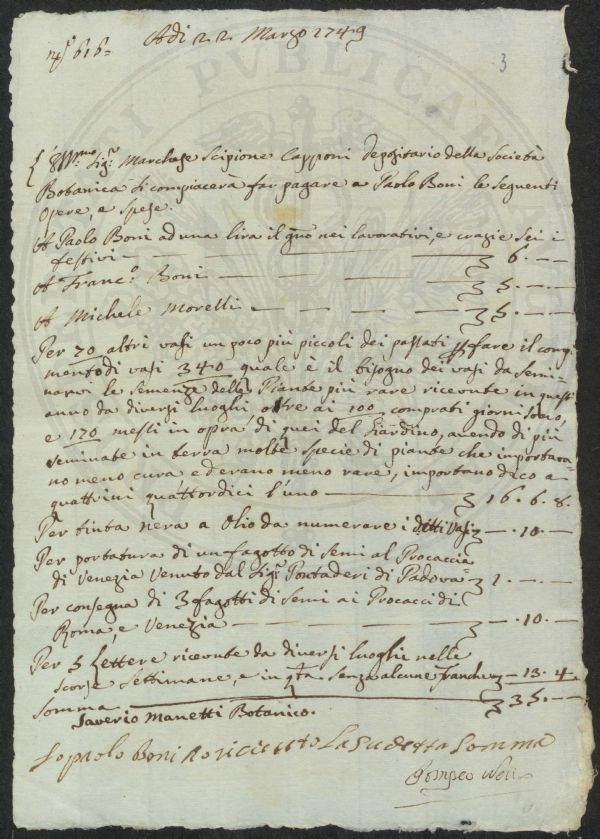 N.º 616=
Adi 22 Marzo 1749
3
Ill.mo Sig.r Marchese Scipione Capponi Depositario della Società
Botanica Si compiacerà far pagare a Paolo Boni le seguenti
Opere, e spese.
A Paolo Boni ad una lira il gno nei lavorativi, e crazie sei i
festivi — 6. — —
A Franc.º Boni — 5. — —
A Michele Morelli — 5. — —
Per 70 altri vasi un poco più piccoli dei passati p fare il compi
mento di vasi 340 quale è il bisogno dei vasi da semi-
narvi le semenze delle Piante più rare ricevute in quest
anno da diversi luoghi oltre ai 100 comprati giorni sono,
e 170 messi in opra di quei del Giardino, avendo di più
seminate in terra molte specie di piante che importava-
no meno cura ed erano meno rare, importano dico a
quattrini quattordici l'uno — 16. 6. 8.
Per tinta nera a Olio da numerare i detti vasi — . 10. —
Per portatura di un fagotto di Semi al Procaccia
di Venezia venuto dal Sig.r Pontaderi di Padova 1. — —
Per consegna di 3 fagotti di Semi ai Procacci di
Roma, e Venezia — . 10. —
Per 5 Lettere ricevute da diversi luoghi nelle
scorse Settimane, e in qta senza alcune franche — 13. 4
Somma — 35. —
Saverio Manetti Botanico.
Io paolo Boni o ricieuto La sudetta Somma
Pompeo